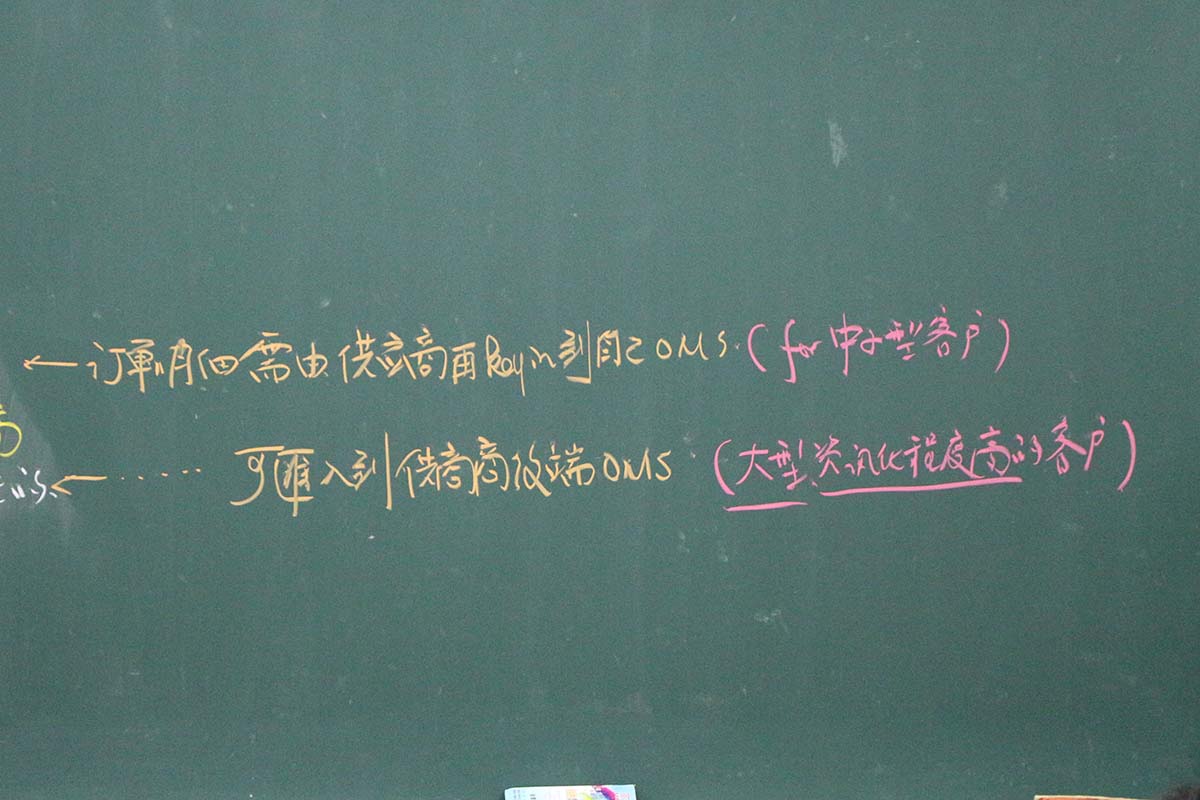 ← 訂單明細需由供应商再key in到自己OMS.(for 中小型客户)
的 ← ······ 可匯入到供商商後端OMS (大型、资訊化程度高的客户)